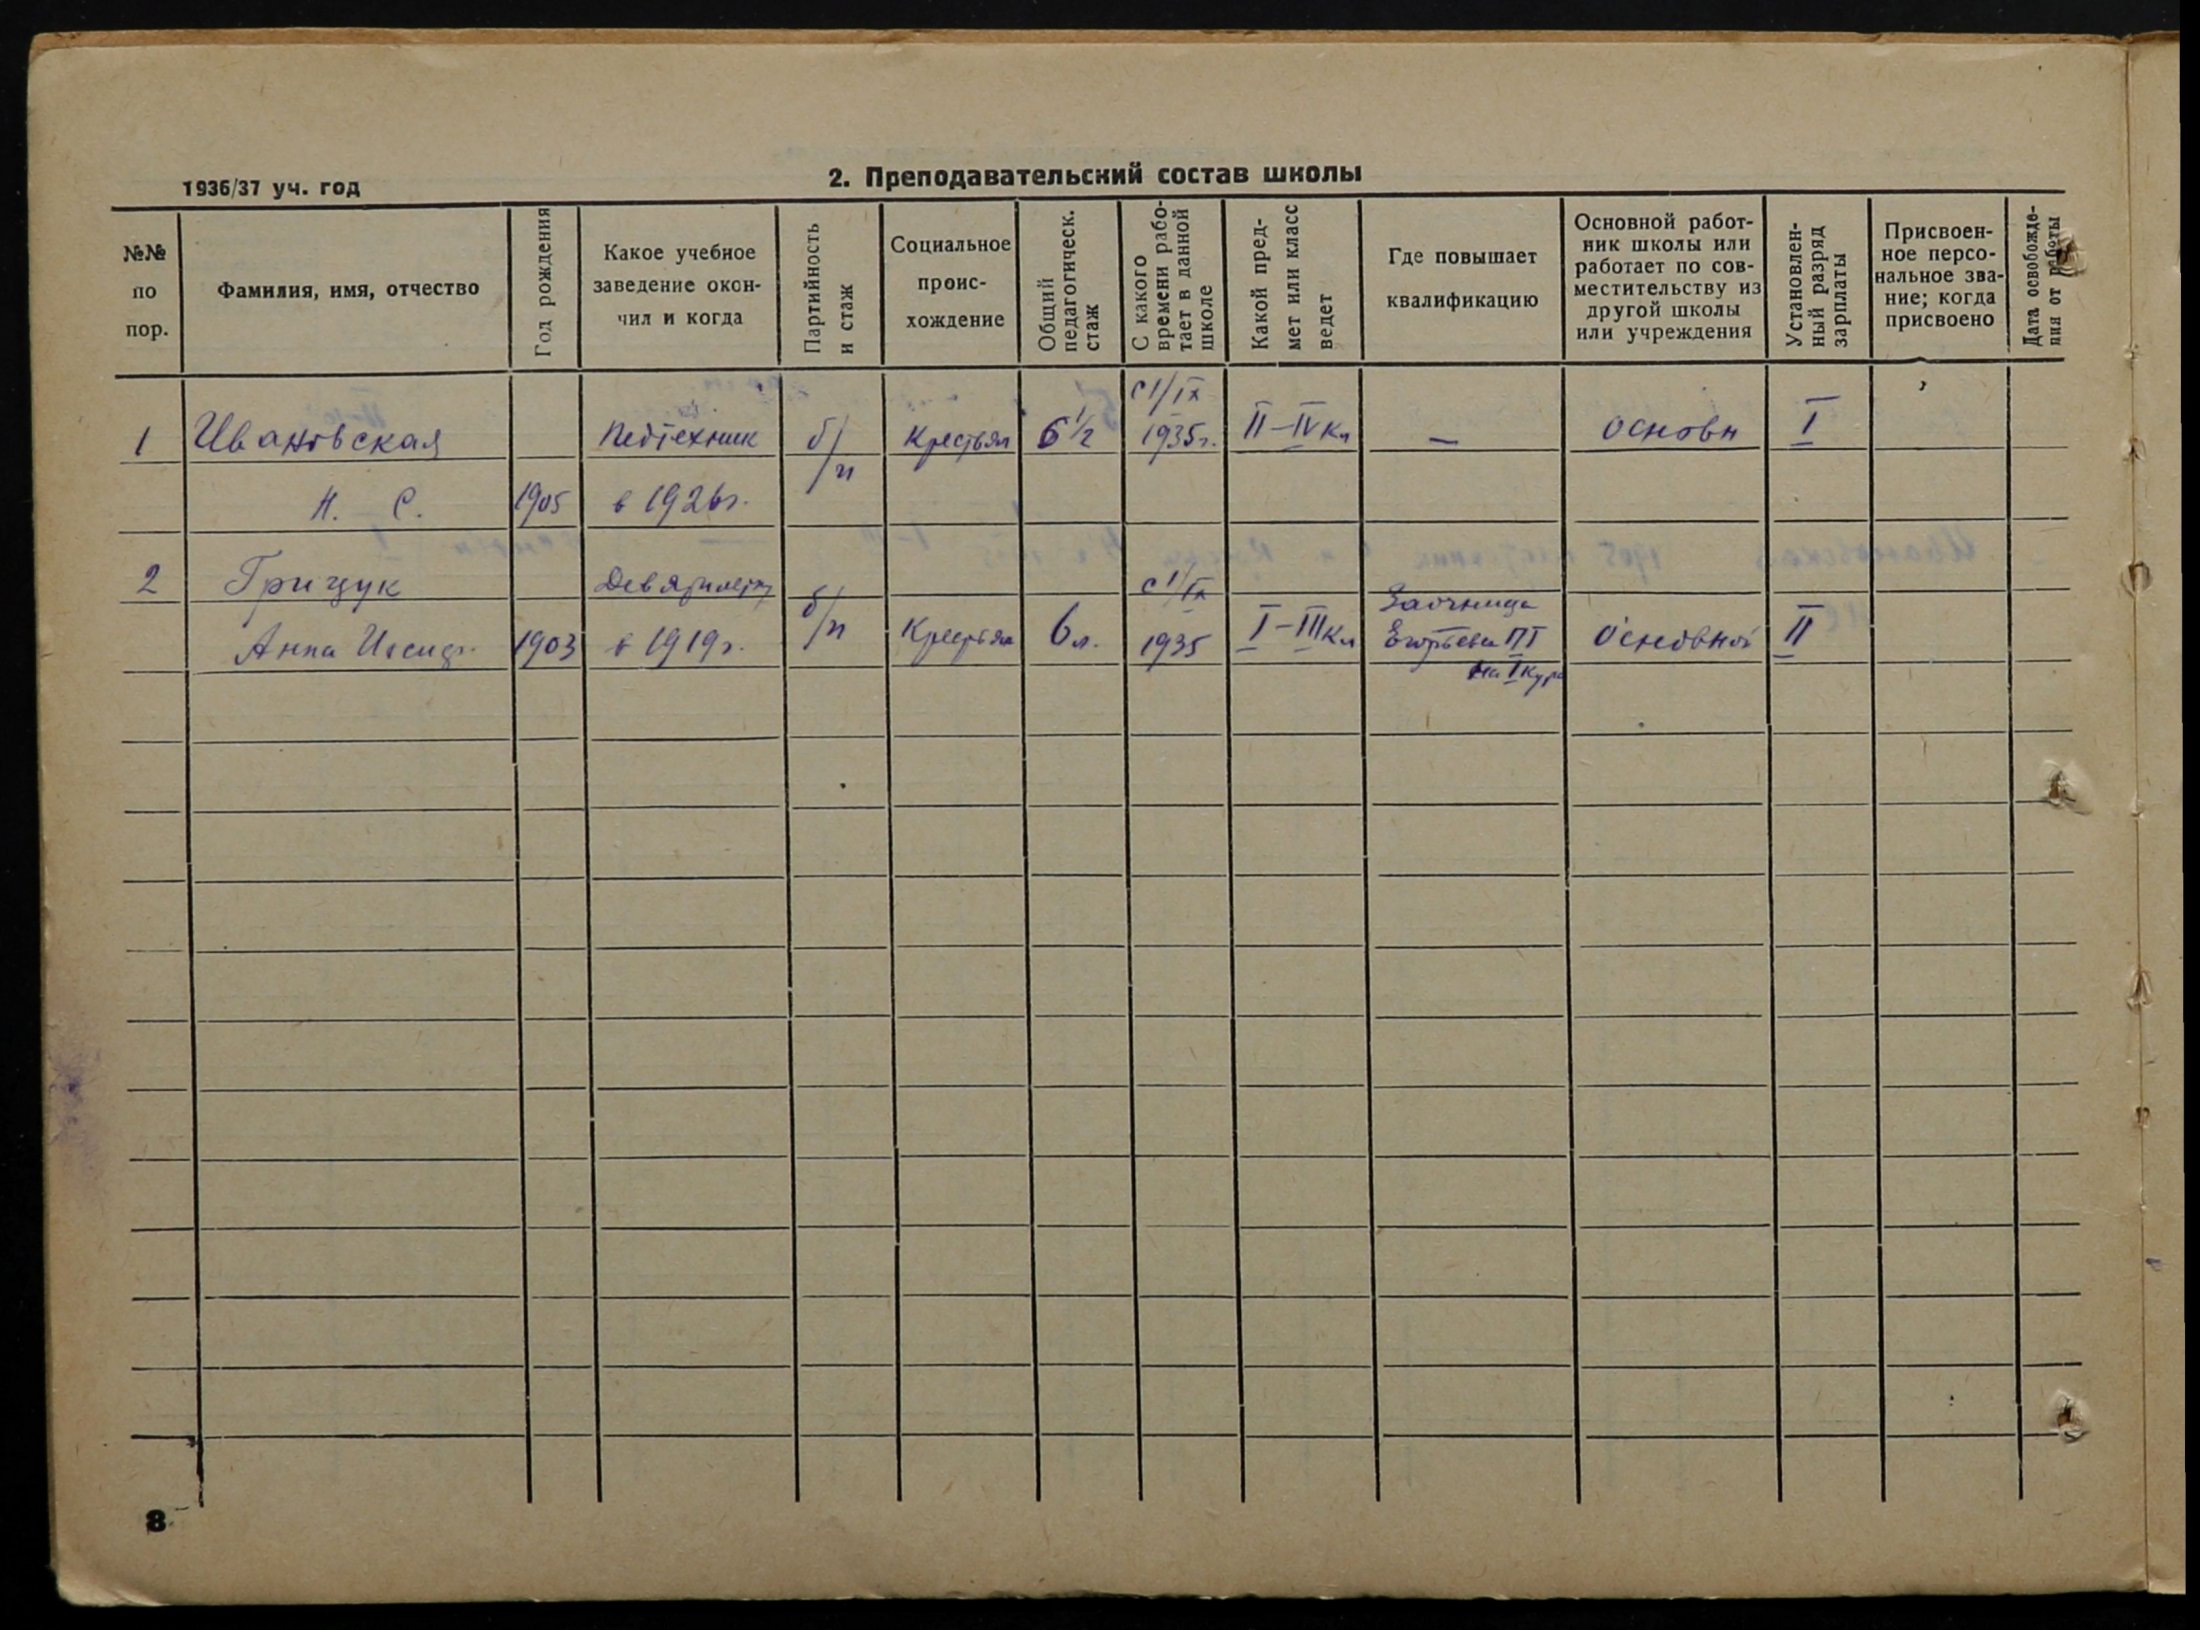 1936/37 уч. год
2. Преподавательский состав школы
№№ по пор.
Фамилия, имя, отчество
Год рождения
Какое учебное заведение окон-чил и когда
Партийность и стаж
Социальное проис-хождение
Общий педагогическ. стаж
С какого времени рабо-тает в данной школе
Какой пред-мет или класс ведет
Где повышает квалификацию
Основной работ-ник школы или работает по сов-местительству из другой школы или учреждения
Установлен-ный разряд зарплаты
Присвоен-ное персо-нальное зва-ние; когда присвоено
Дата освобожде-ния от работы
с 1/IX
1 Ивановская Педтехник б/п Крестьян 6 1/2 1935г. II–IV кл — основн I
Н. С. 1905 в 1926г.
2 Грицук Девятилетку с 1/IX
Заочница
Анна Исид. 1903 в 1919г. б/п Крестьян 6 л. 1935 I–III кл ПТ Основной II
на I курс
8